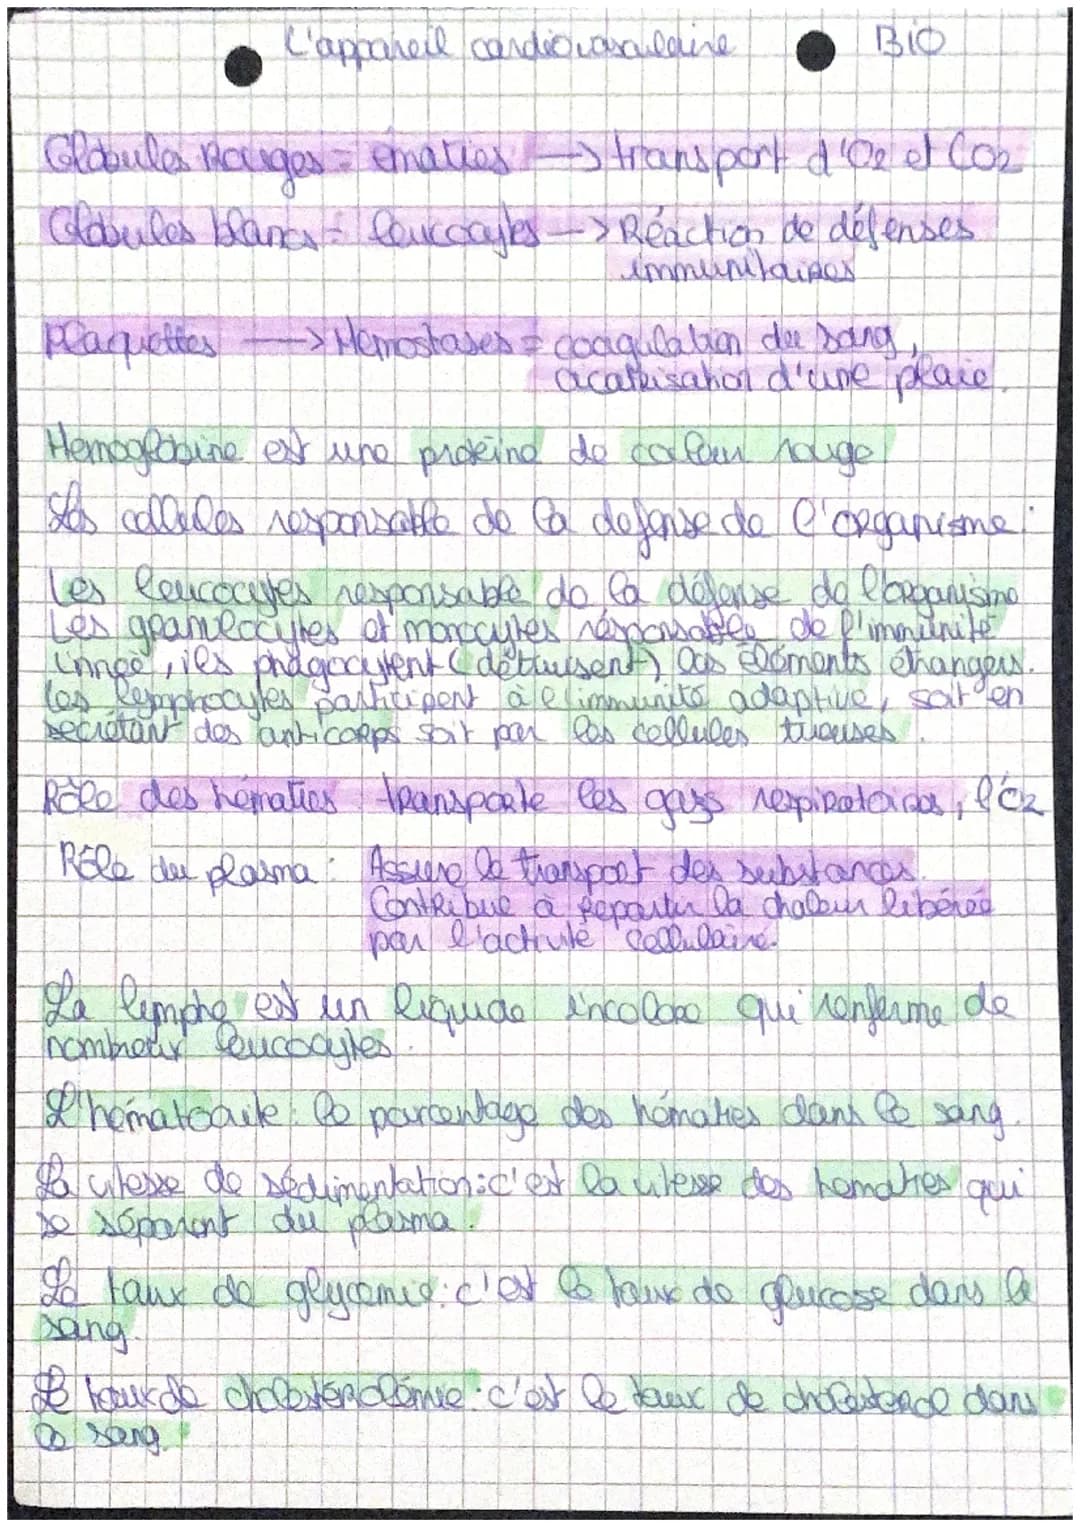 L'appareil cardiovasculaire BIO
Globules Rouges = ématies → transport d'O2 et CO2
Globules blancs = leucocytes → Réaction de défenses
immunitaires
plaquettes → Hemostases = coagulation du sang,
cicatrisation d'une plaie.
Hemoglobine est une protéine de couleur rouge
Les cellules responsable de la defense de l'organisme :
Les leucocytes responsable de la défense de l'organisme
Les granulocytes et monocytes responsables de l'immunité
innée, ils phagocytent (détruisent) les éléments étrangers.
Les lymphocytes participent à l'immunité adaptive, soit en
secrétant des anticorps soit par les cellules tueuses.
Rôle des hématies transporte les gazs respiratoires, l'O2
Rôle du plasma : Assure le transport des substances.
Contribue à repartir la chaleur libérée
par l'activité cellulaire.
La lymphe est un liquide incolore qui renferme de
nombreux leucocytes.
L'hématocrite : le pourcentage des hématies dans le sang.
La vitesse de sédimentation : c'est la vitesse des hematies qui
se séparent du plasma.
Le taux de glycemie : c'est le taux de glucose dans le
sang.
Le taux de cholestérolémie : c'est le taux de cholesterol dans
le sang.